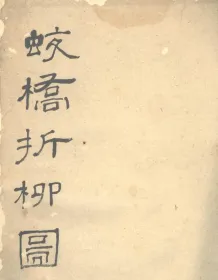 蛟橋折柳圖